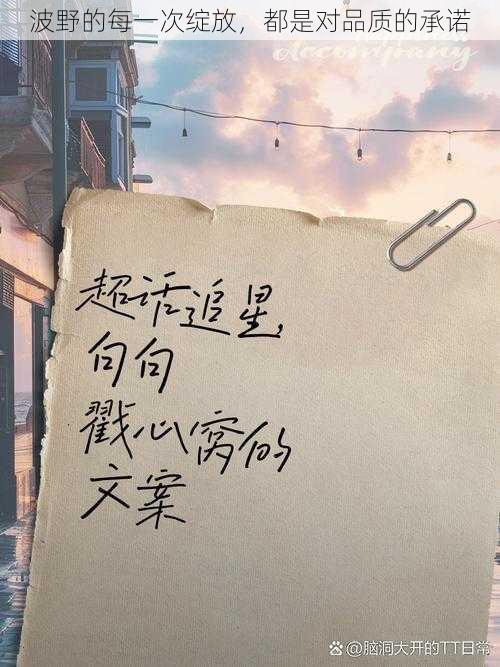 波野的每一次绽放，都是对品质的承诺
Accompany
超话追星，
句句
戳心窝的
文案
@脑洞大开的TT日常